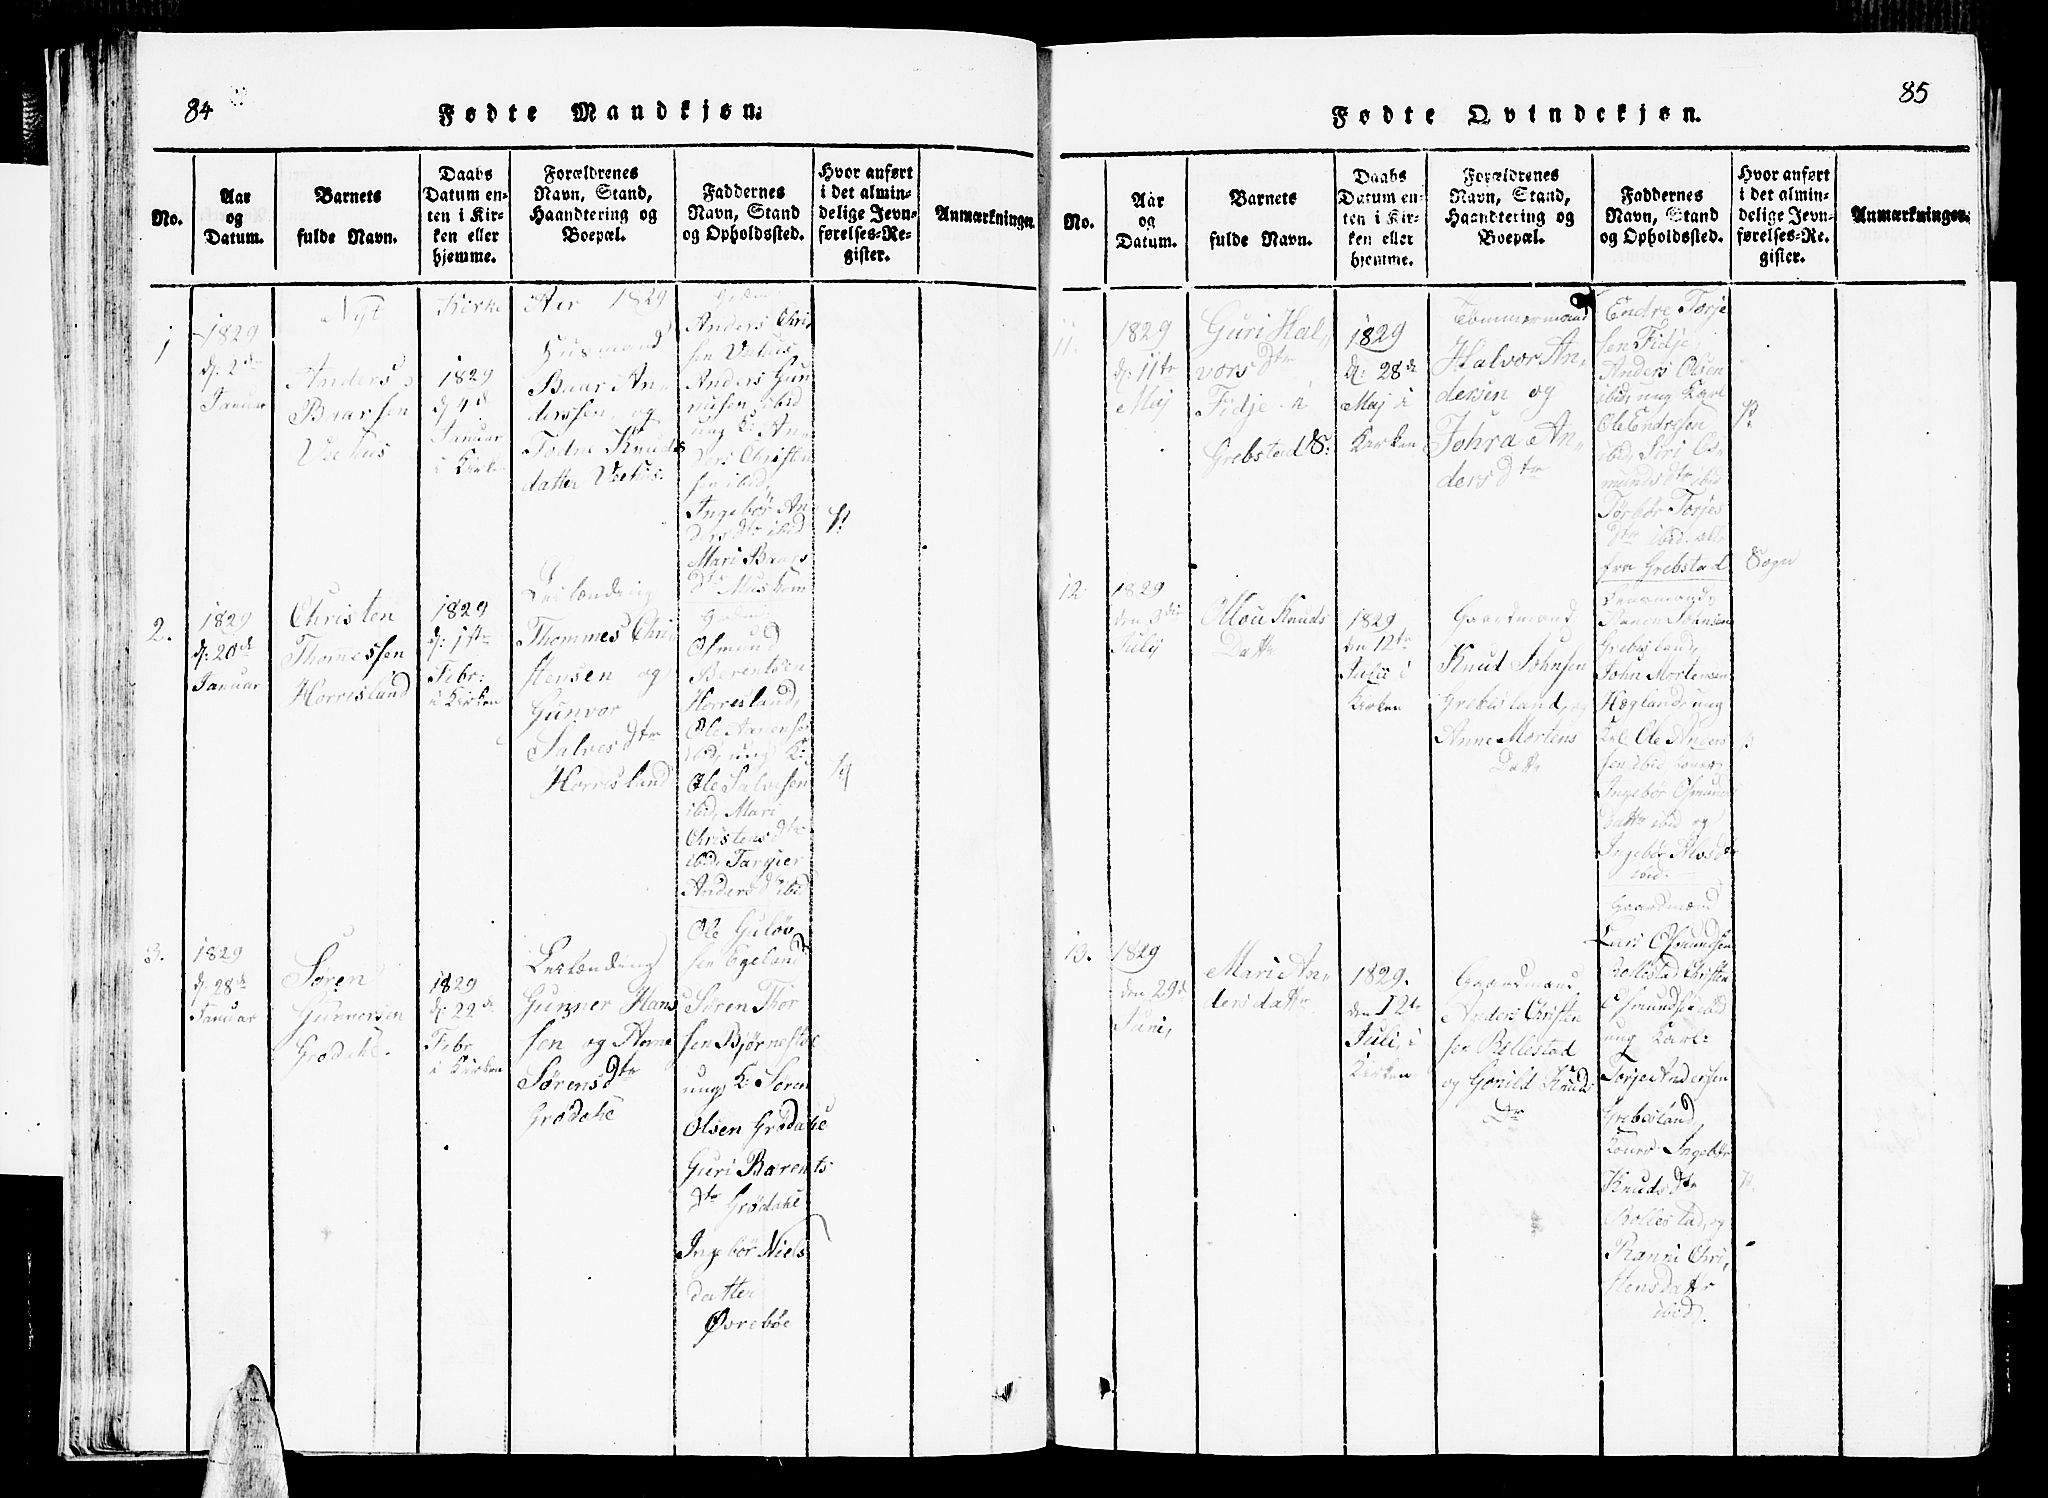 84
Fødte Mandkjøn.
No.
Aar
og
Datum.
Barnets
fulde Navn.
Daabs
Datum en-
ten i Kir-
ken eller
hjemme.
Forældrenes
Navn, Stand,
Haandtering og
Boepæl.
Faddernes
Navn, Stand
og Opholdssted.
Hvor anført
i det almin-
delige Jevn-
førelses-Re-
gister.
Anmærkninger.
Nyt Kirke Aar 1829
1
1829
d: 2de
Januar
Anders
Baarsen
1829
d 4d
Januar
i Kirk
Husmand
Baar An-
derssen og
Todne Knuds
datter
Anders Chri
sen
Anders Gun
ibid
ung K: An-
ders Christen
sen ibid,
Ingebør An
ders dtr ibid
Mari Baars
dtr
2.
1829
d: 20de
Januar
Christen
Thomessen
Horrisland
1829
d: 1ste
Febr:
i Kirken
Leilænding
Thommes Chri
stensen og
Gunvor
Salves dtr
Horrisland
Osmund
Berentsen
Horrisland,
Ole
ung K:
Ole Salvesen
ibid, Mari
Christens dtr
ibid, Targier
Anders dtr ibid
3.
1829
d: 28de
Januar
Søren
Gunnersen
Grødahe.
1829
d: 22de
Febr
i Kirken
Leilænding
Gunner Hans
sen og Anne
Sørens dtr
Grødahe
Ole Guløv
sen Egeland
Søren Thor
sen Bjørnestøe
ung K: Søren
Olsen Grødahe
Guri Barents
dtr Grødahe
Ingebør Niels
datter
Øvrebøe
85
Fødte Qvindekjøn.
No.
Aar
og
Datum.
Barnets
fulde Navn.
Daabs
Datum en-
ten i Kir-
ken eller
hjemme.
Forældrenes
Navn, Stand,
Haandtering og
Boepæl.
Faddernes
Navn, Stand
og Opholdssted.
Hvor anført
i det almin-
delige Jevn-
førelses-Re-
gister.
Anmærkninger.
11.
1829
d: 11te
Maj
Guri Hal,,
vors dtr
Fidje i
Grebstad S:
1829
d: 28de
Maj i
Kirken
Tømmermand
Halvor An-
dersen og
Johra An-
ders dtr
Endre Torje
sen Fidje,
Anders Olsen
ibid, ung Karl
Ole Endresen
ibid, Siri Os-
munds dtr ibid
Torbør Torjes
dtr ibid alle
fra Grebstad Sogn
12
1829
den 3die
July
Knuds
Dattr
1829
den 12te
Julii i
Kirken
Gaardmand
Knut Johnsen
Grebisland, og
Anne Mortens
Dattr
Johnsen
Grebisland,
John Mortensen
Høgland, ung
Karl Ole Anders
sen ibid, koner
Ingebør Osmunds
Dattr ibid og
Ingebør Alvs dtr
ibid.
13.
1829
den 29de
Juni,
Mari An-
ders dattr
1829.
den 12te
Juli, i
Kirken
Gaardmand
Anders Christen
sen Røllestad
og Gonild Knuds
Dr
Gaardmænd
Lars Osmundsen
Røllestad Christen
Osmundsen ibid
ung Karl:
Torje Andersen
Grebisland,
Koner Ingebør
Knuds dtr
Røllestad, og
Ranni Chri,
stensdattr
ibid.